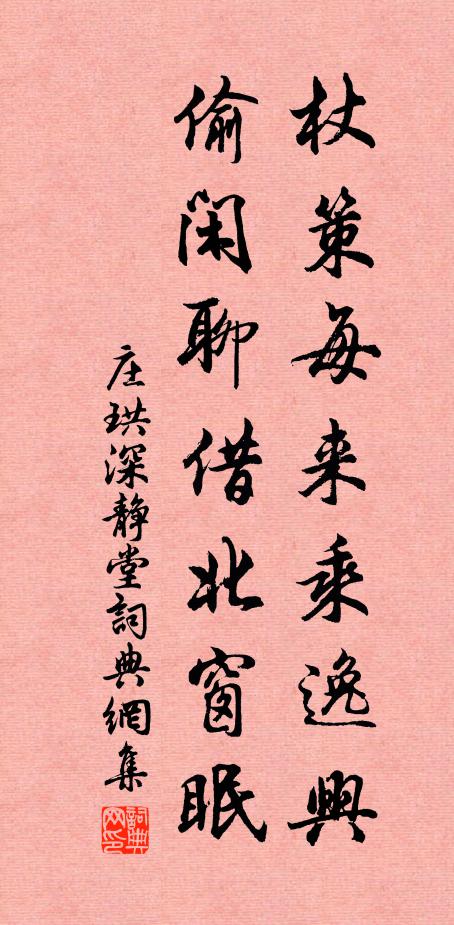 杖策每来乘逸興
偷閑聊借北窗眠
庄珙深靜堂詞典網集
詞典网印